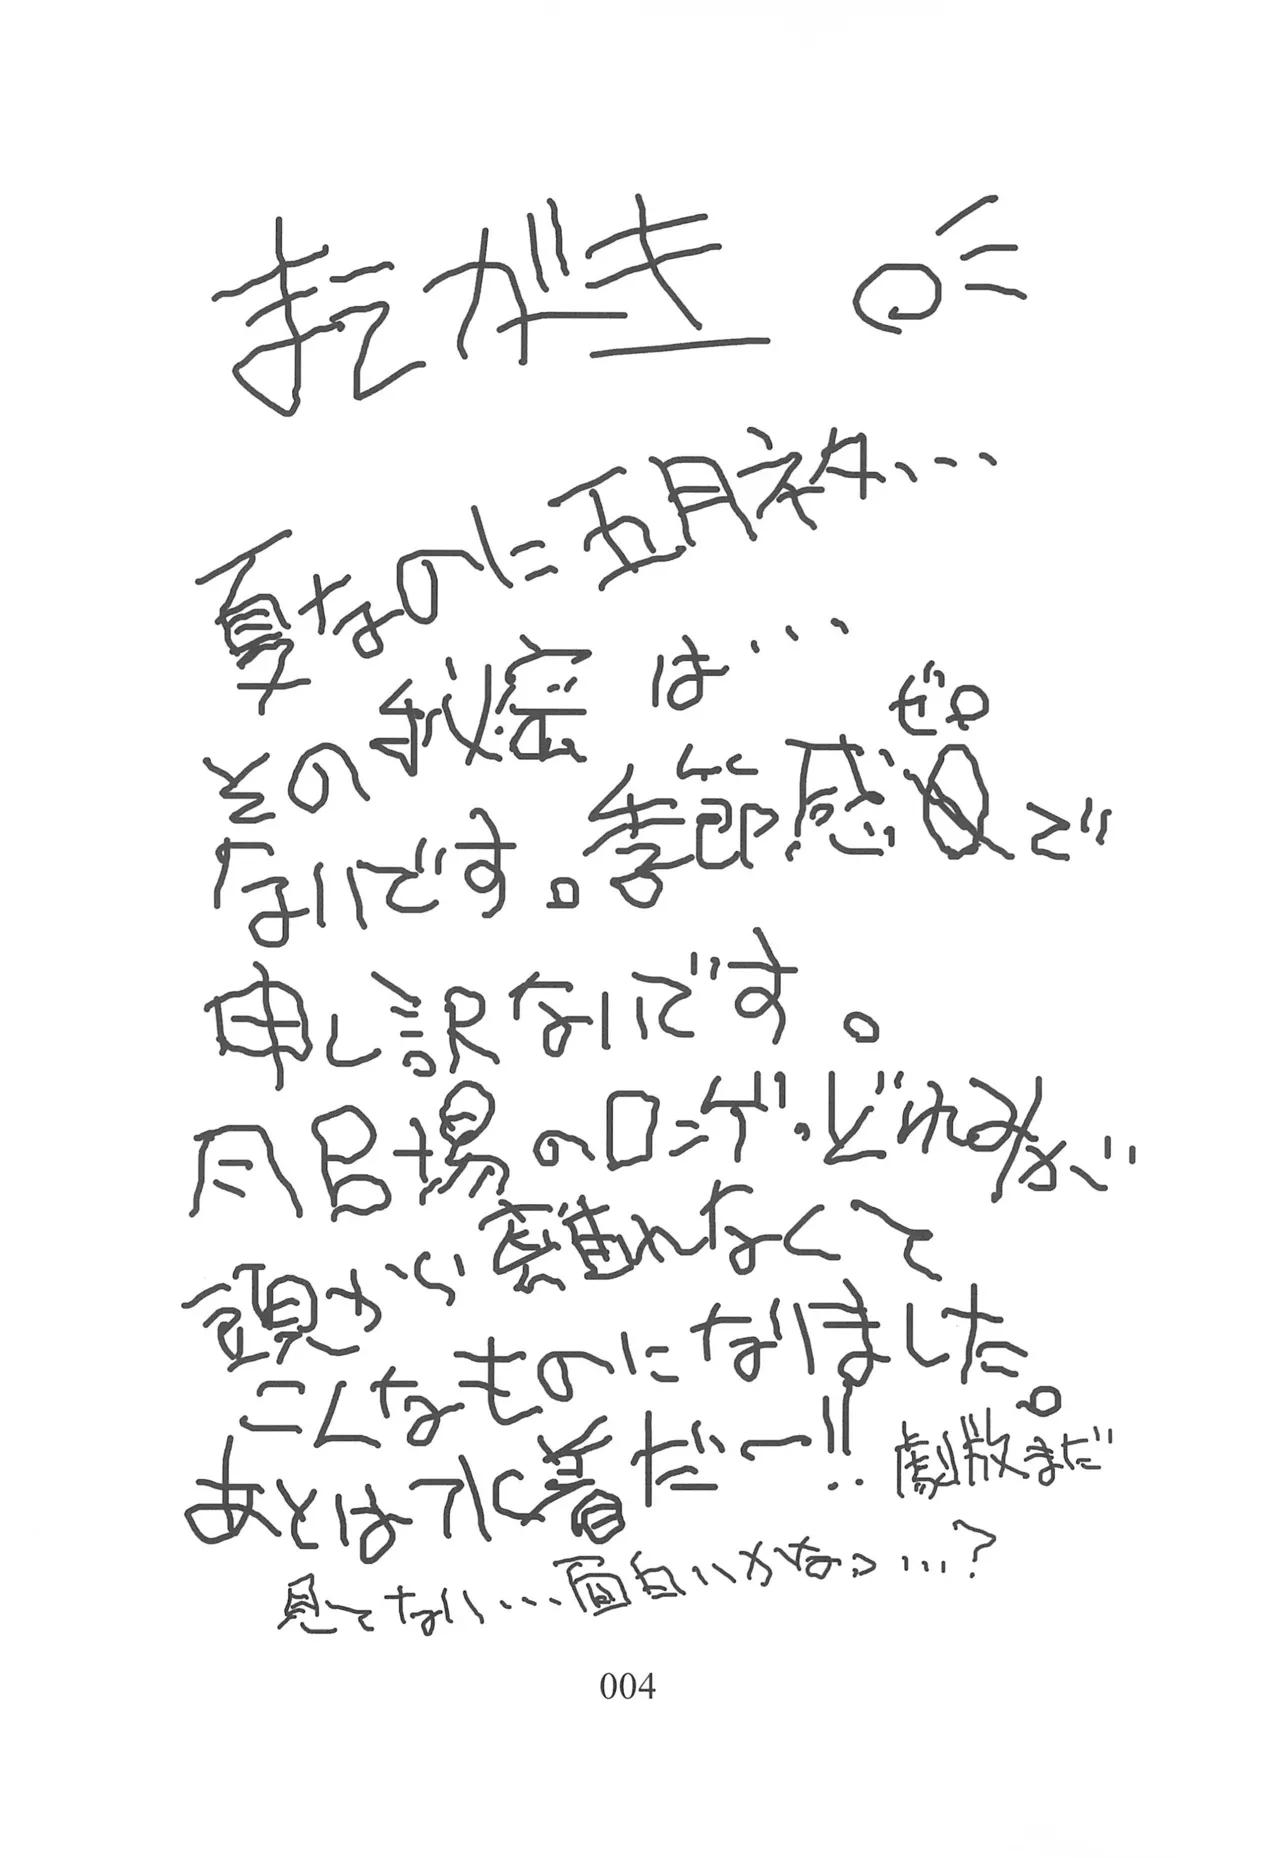 まえがき
夏なのに五月ネタ…
その秘密は…
ないです。季節感0で
ゼロ
申し訳ないです。
同居場のロンゲ・どれみが
頭から離れなくて
こんなものになりました。
あとは水着だー!!
劇版まだ
見てない…面白いかなっ…?
004